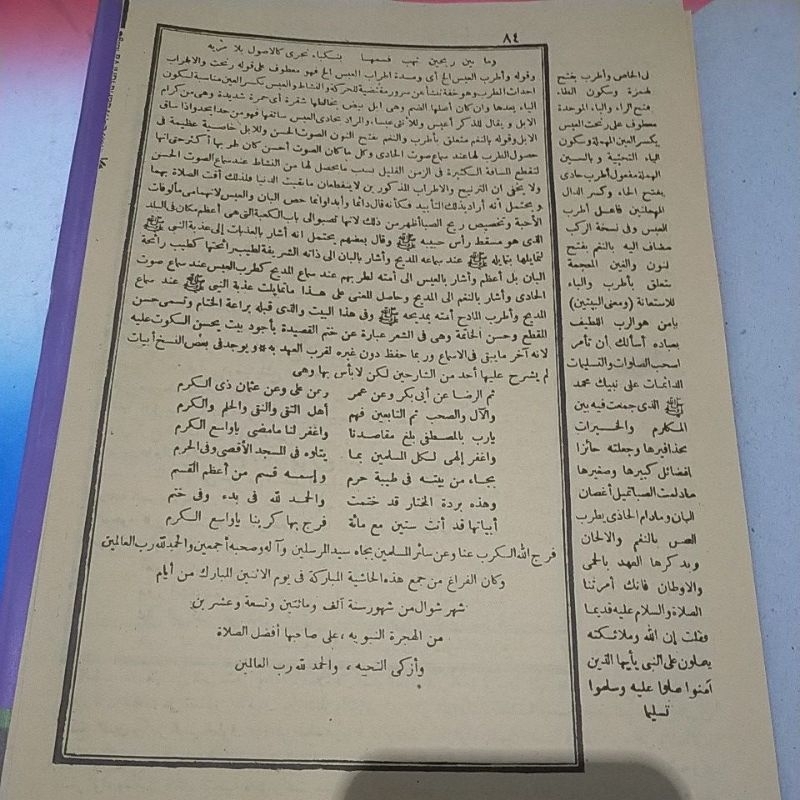 ٨٤
وما بين ريحين تهب قسمها بنسكباء تجرى كالاصول بلا مريه
وقوله وأطرب العيس الخ أى ومدة اطراب العيس الخ فهو معطوف على قوله رنحت والاطراب
احداث الطرب وهو خفة تنشأ عن سرور مقتضية للحركة والنشاط والعيس بكسر العين مناسبة لسكون
الياء بعدها وان كان أصلها الضم وهى ابل بيض يخالطها شقرة أى حمرة شديدة وهى من كرام
الابل و يقال للذكر أعيس وللانثى عيساء والمراد بحادى العيس سائقها فهو من حدا يحدو اذا ساق
الابل وقوله بالنغم متعلق بأطرب والنغم بفتح النون الصوت الحسن وللابل خاصية عظيمة فى
حصول الطرب لها عند سماع صوت الحادى وكل ما كان الصوت أحسن كان طربها أكثر حتى انها
لتقطع المسافة الكثيرة فى الزمن القليل بسبب ما يحصل لها من النشاط عند سماع الصوت الحسن
ولا يخفى ان الترنيح والاطراب المذكورين لا ينقطعان ما بقيت الدنيا فلذلك أقت الصلاة بهما
و يحتمل أنه أراد بذلك التأبيد فكأنه قال دائما وأبدا وانما خص البان والعيس لانهما من مألوفات
الأحبة وتخصيص ريح الصبا أظهر من ذلك لانها تصبو الى باب الكعبة التى هى أعظم مكان فى البلد
الذى هو مسقط رأس حبيبه ﷺ وقال بعضهم يحتمل انه أشار بالعذبات إلى عذبة النبى ﷺ
لتمايلها بتمايله ﷺ عند سماعه المديح وأشار بالبان الى ذاته الشريفة لطيب رائحتها كطيب رائحة
البان بل أعظم وأشار بالعيس الى أمته لطربهم عند سماع المديح كطرب العيس عند سماع صوت
الحادى وأشار بالنغم الى المديح وحاصل المعنى على هذا ما تمايلت عذبة النبى ﷺ عند سماع
المديح وأطرب المادح أمته بمديحه ﷺ وفى هذا البيت والذى قبله براعة الختام وتسمى حسن
المقطع وحسن الخاتمة وهى فى الشعر عبارة عن ختم القصيدة بأجود بيت يحسن السكوت عليه
لانه آخر ما يبقى فى الاسماع وربما حفظ دون غيره لقرب العهد به * ويوجد فى بعض النسخ أبيات
لم يشرح عليها أحد من الشارحين لكن لا بأس بها وهى
ثم الرضا عن أبى بكر وعن عمر وعن على وعن عثمان ذى الكرم
والآل والصحب ثم التابعين فهم أهل التقى والنقى والحلم والكرم
يارب بالمصطفى بلغ مقاصدنا واغفر لنا ما مضى ياواسع الكرم
واغفر إلهى لكل المسلمين بما يتلوه فى المسجد الأقصى وفى الحرم
بجاه من بيته فى طيبة حرم وإسمه قسم من أعظم القسم
وهذه بردة المختار قد ختمت والحمد لله فى بدء وفى ختم
أبياتها قد أتت ستين مع مائة فرج بها كربنا ياواسع الكرم
فرج الله الكرب عنا وعن سائر المسلمين بجاه سيد المرسلين وآله وصحبه أجمعين والحمد لله رب العالمين
وكان الفراغ من جمع هذه الحاشية المباركة فى يوم الاثنين المبارك من أيام
شهر شوال من شهور سنة ألف ومائتين وتسعة وعشرين
من الهجرة النبويه ، على صاحبها أفضل الصلاة
وأزكى التحيه ، والحمد لله رب العالمين
لى الخاص وأطرب بفتح
لهمزة وسكون الطاء
وفتح الراء والباء الموحدة
معطوف على رنحت العيس
بكسر العين المهملة وسكون
الياء التحتية و بالسين
المهملة مفعول أطرب حادى
بفتح الحاء وكسر الدال
المهملتين فاعل أطرب
العيس وفى نسخة الركب
مضاف اليه بالنغم بفتح
لنون والغين المعجمة
متعلق بأطرب والباء
للاستعانة (ومعنى البيتين)
يامن هو الرب اللطيف
بعباده أسألك أن تأمر
اسحب الصلوات والتسليمات
الدائمات على نبيك محمد
ﷺ الذى جمعت فيه بين
المكارم والخيرات
بحذافيرها وجعلته حائزا
افضائل كبيرها وصغيرها
مادامت الصبا تميل أغصان
البان ومادام الحادى يطرب
العيس بالنغم والالحان
ويذكرها العهد بالحمى
والاوطان فانك أمرتنا
الصلاة والسلام عليه قديما
وقلت إن الله وملائكته
يصلون على النبى يأيها الذين
آمنوا صلوا عليه وسلموا
تسليما